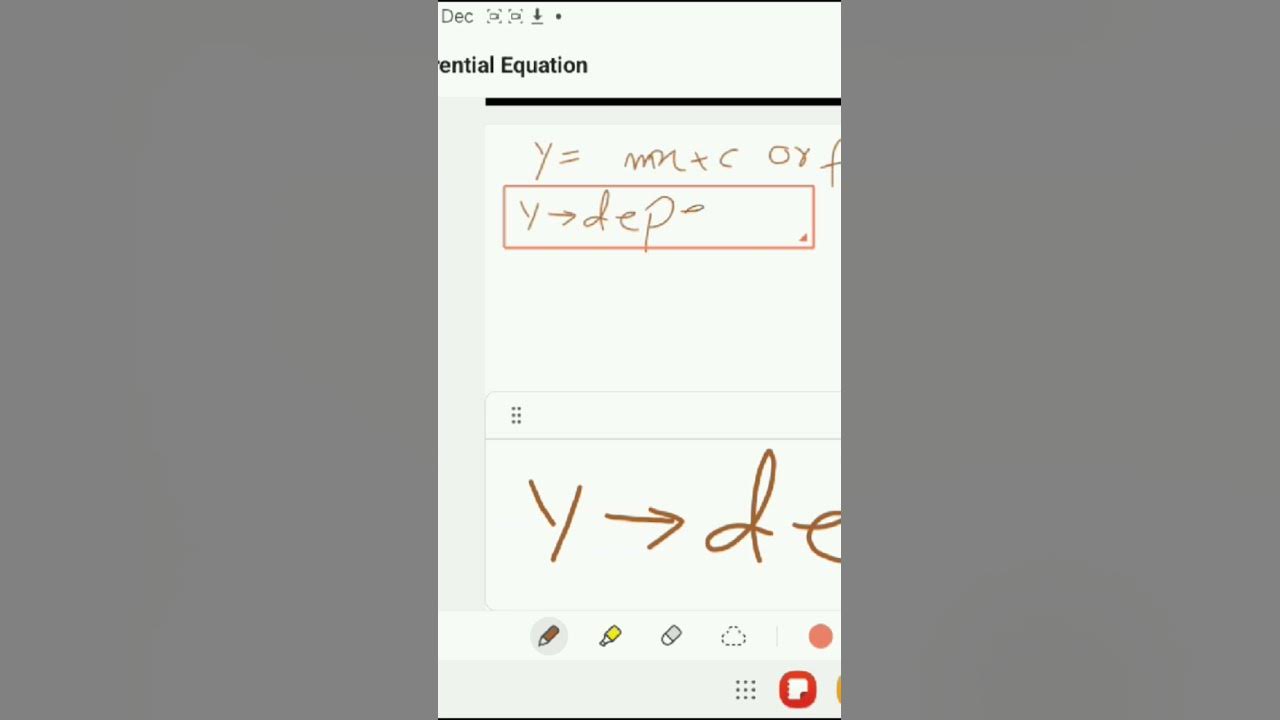 Dec
rential Equation
y = mx + c or f
y → depe
y → de